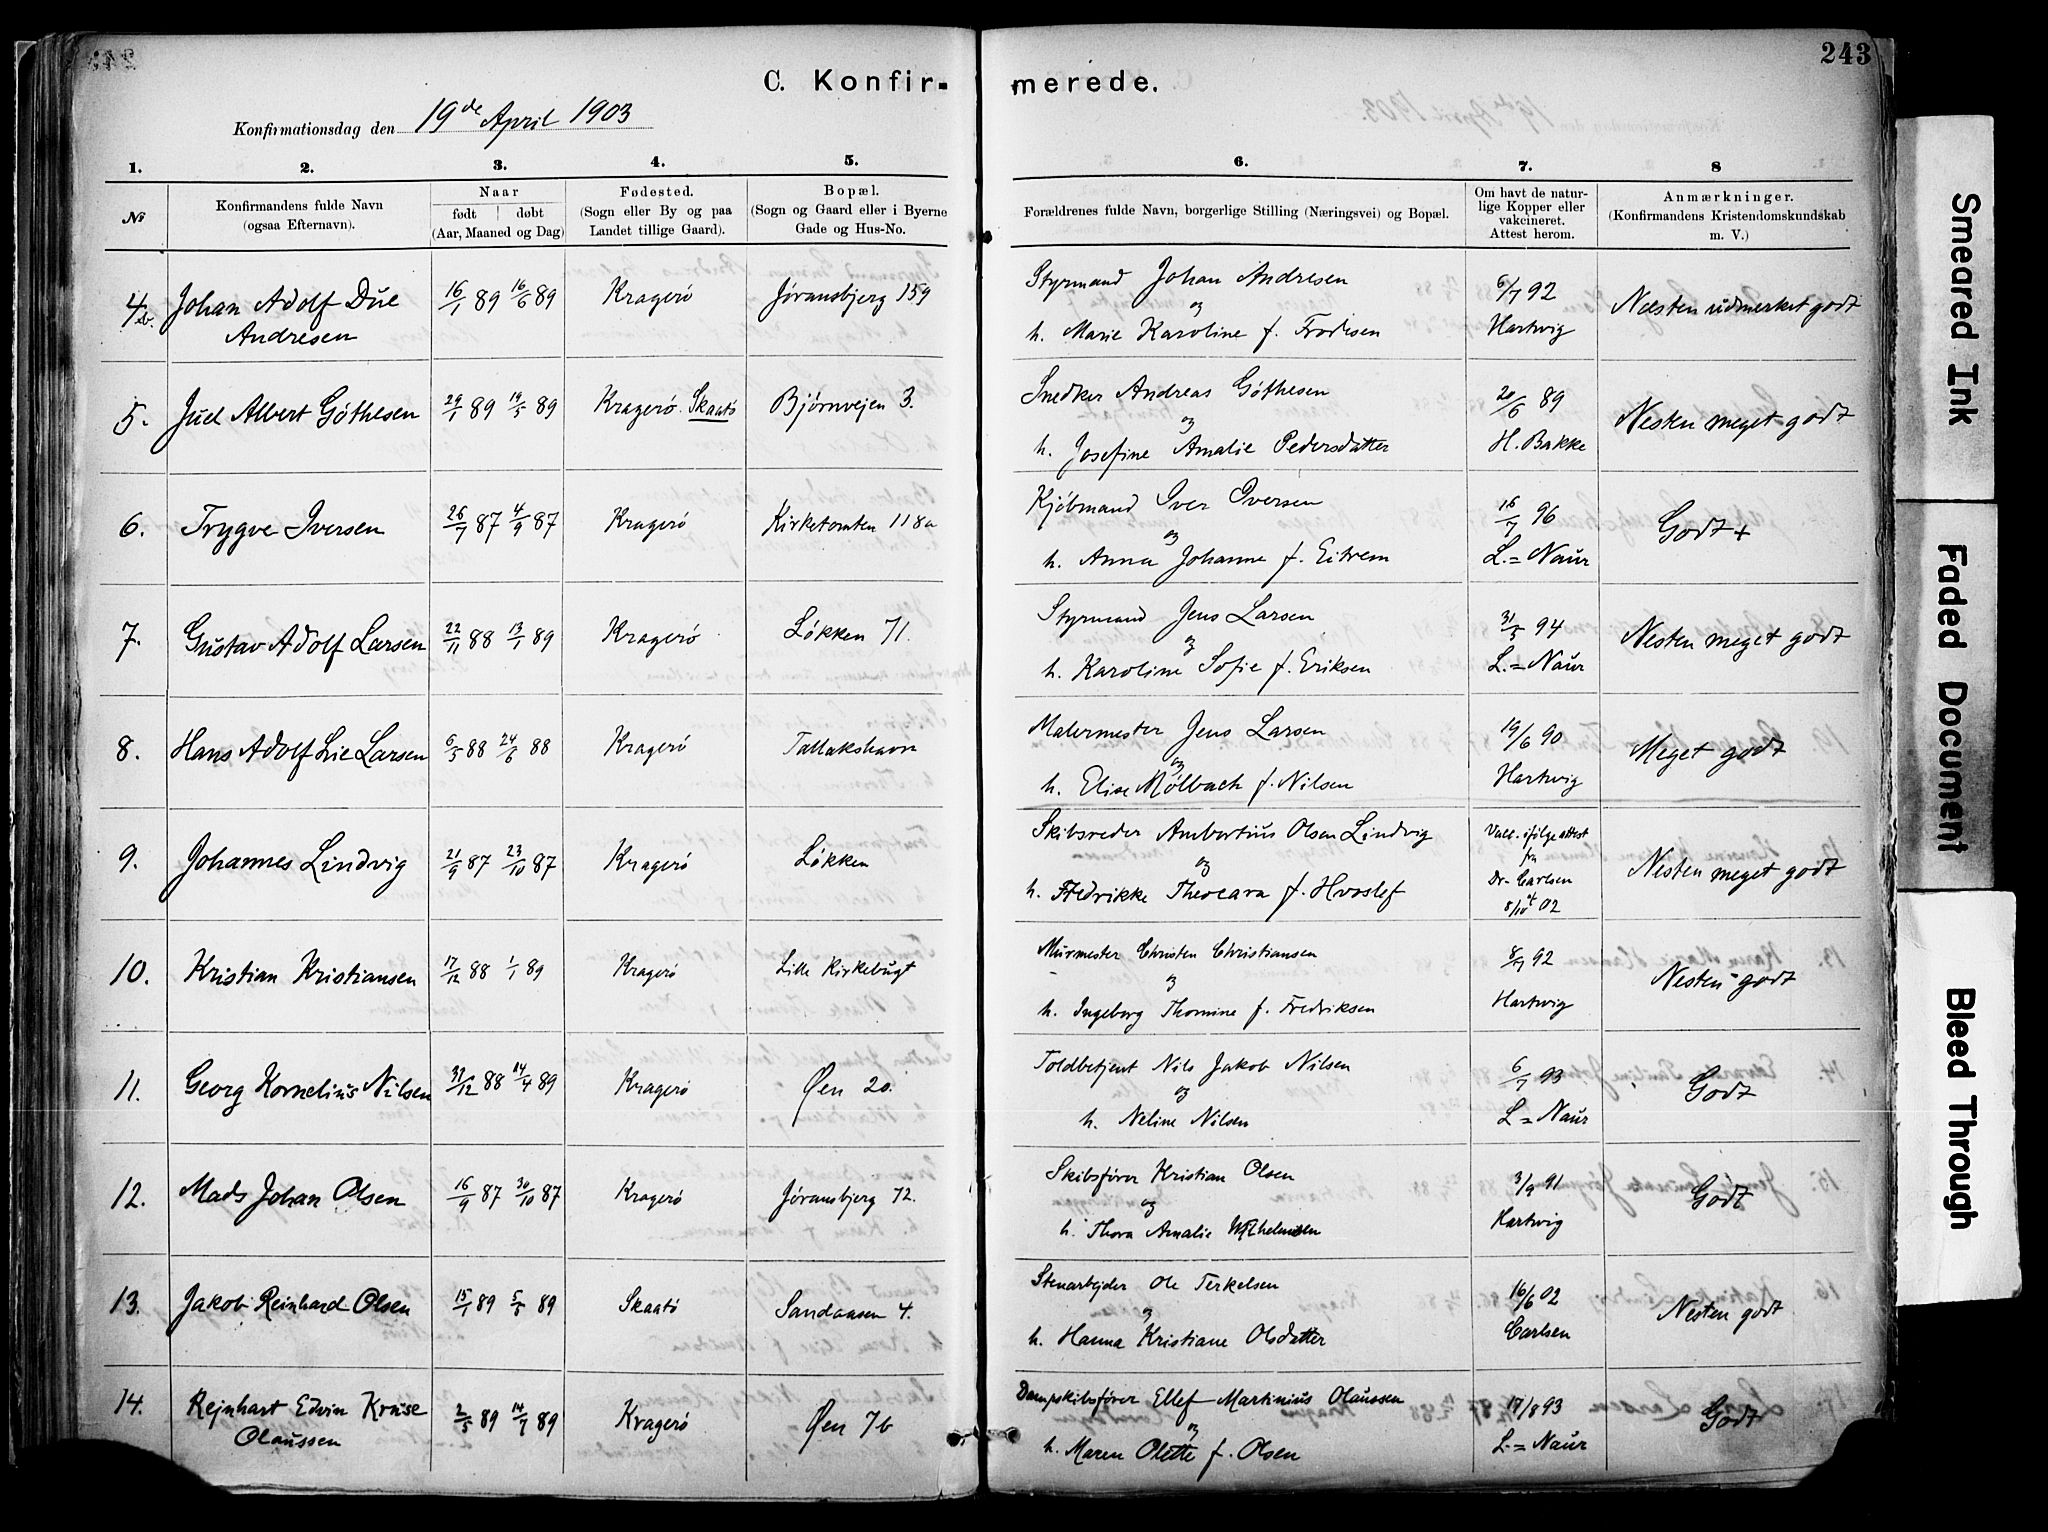 243
C. Konfir-merede.
Konfirmationsdag den 19de April 1903
1. 2. 3. 4. 5. 6. 7. 8
No
Konfirmandens fulde Navn (ogsaa Efternavn).
Naar født | døbt (Aar, Maaned og Dag)
Fødested. (Sogn eller By og paa Landet tillige Gaard).
Bopæl. (Sogn og Gaard eller i Byerne Gade og Hus-No.
Forældrenes fulde Navn, borgerlige Stilling (Næringsvei) og Bopæl.
Om havt de naturlige Kopper eller vakcineret. Attest herom.
Anmærkninger. (Konfirmandens Kristendomskundskab m. V.)
4b. Johan Adolf Due 16/1 89 16/6 89 Kragerö Jøransbjerg 159 Styrmand Johan Andresen 6/7 92 Næsten udmerket godt
Andresen og
h. Marie Karoline f. Frodesen Hartvig
5. Juel Albert Göthesen 29/1 89 19/5 89 Kragerö. Skaatö Bjørnvejen 3. Snedker Andreas Göthesen 20/6 89 Nesten meget godt
og
h. Josefine Amalie Pedersdatter H. Bakke
6. Trygve Iversen 26/7 87 4/9 87 Kragerö Kirketomten 118a Kjöbmand Iver Iversen 16/7 96 Godt +
og
h. Anna Johanne f. Eitrem L. = Naur
7. Gustav Adolf Larsen 22/11 88 13/1 89 Kragerö Lökken 71. Styrmand Jens Larsen 31/5 94 Nesten meget godt
og
h. Karoline Sofie f. Eriksen L. = Naur
8. Hans Adolf Lie Larsen 6/5 88 24/6 88 Kragerö Tallakshavn Malermester Jens Larsen 19/6 90 Meget godt
og
h. Elise Mölbach f. Nilsen Hartvig
9. Johannes Lindvig 21/9 87 23/10 87 Kragerö Løkken Skibsreder Ambortius Olsen Lindvig Vacc. ifölge attest Nesten meget godt
og fra
h. Fredrikke Theocara f. Hvoslef Dr. Carlsen
8/10 02
10. Kristian Kristiansen 17/12 88 1/1 89 Kragerö Lille Kirkebugt Murmester Christen Christiansen 8/7 92 Nesten godt
og
h. Ingeborg Thomine f. Fredriksen Hartvig
11. Georg Kornelius Nilsen 31/12 88 14/4 89 Kragerö Øen 20. Toldbetjent Nils Jakob Nilsen 6/7 93 Godt
og
h. Neline Nilsen L = Naur
12. Mads Johan Olsen 16/9 87 30/10 87 Kragerö Jøransbjerg 72. Skibsförer Kristian Olsen 3/9 91 Godt
og
h. Thora Amalie Wilhelmsen Hartvig
13. Jakob Reinhard Olsen 15/1 89 5/5 89 Skaatö Sandaasen 4. Stenarbejder Ole Terkelsen 16/6 02 Nesten godt
og
h. Hanna Kristiane Olsdatter Carlsen
14. Rejnhart Edvin Kruse 2/5 89 14/7 89 Kragerö Øen 7b Dampskibsförer Ellef Martinius Olaussen 17/8 93 Godt
Olaussen og
h. Maren Olette f. Olsen L. = Naur
Smeared Ink
Faded Document
Bleed Through